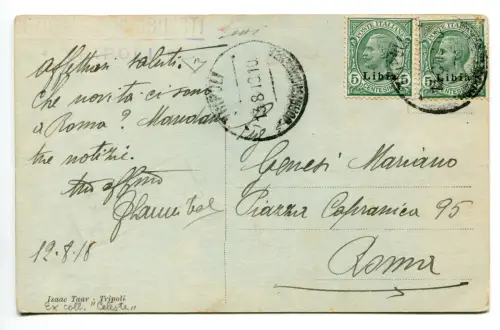 Affettuosi saluti.
Che novità ci sono
a Roma? Mandami
tue notizie.
tuo affmo
12.8.18
Isaac Taur - Tripoli
Ex coll. "Celeste"
TRIPOLI
13.8.18
POSTE ITALIANE
5 Libia 5
CENTESIMI
POSTE ITALIANE
5 Libia 5
CENTESIMI
Genesi Mariano
Piazza Capranica 95
Roma